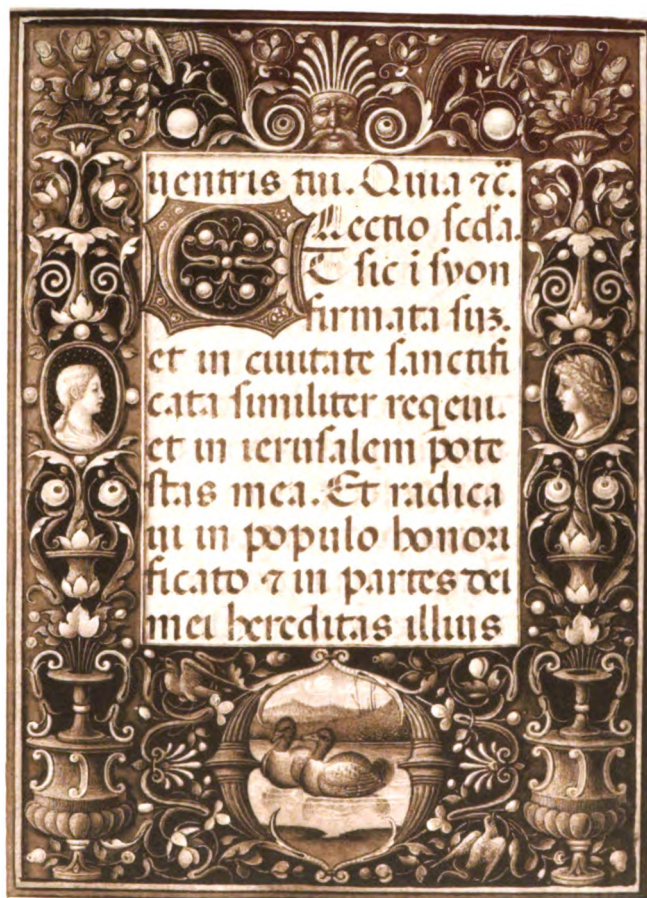 uentris tui. Quia ⁊c̃.
Lectio sc̃da.
Et sic i syon
firmata suʒ.
et in ciuitate sanctifi
cata similiter reqͤeui.
et in ierusalem pote
stas mea. Et radica
ui in populo honori
ficato ⁊ in partes dei
mei hereditas illius